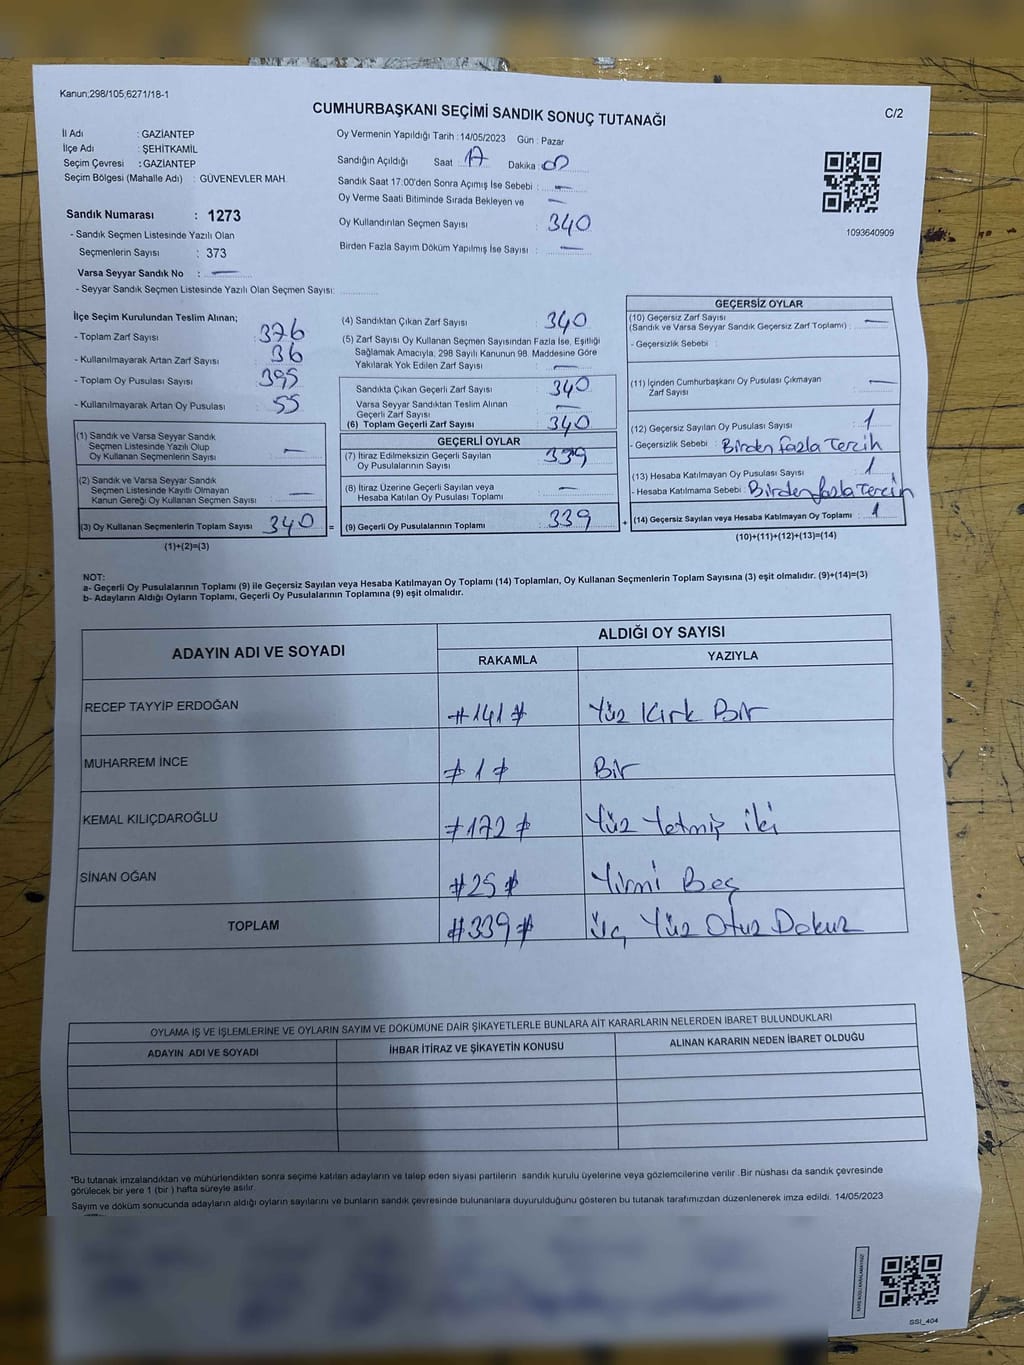 Kanun;298/105,6271/18-1
C/2
CUMHURBAŞKANI SEÇİMİ SANDIK SONUÇ TUTANAĞI
İl Adı : GAZİANTEP
İlçe Adı : ŞEHİTKAMİL
Seçim Çevresi : GAZİANTEP
Seçim Bölgesi (Mahalle Adı) : GÜVENEVLER MAH.
Sandık Numarası : 1273
- Sandık Seçmen Listesinde Yazılı Olan
Seçmenlerin Sayısı : 373
Varsa Seyyar Sandık No : —
- Seyyar Sandık Seçmen Listesinde Yazılı Olan Seçmen Sayısı:
Oy Vermenin Yapıldığı Tarih : 14/05/2023 Gün : Pazar
Sandığın Açıldığı Saat : 17 Dakika :
Sandık Saat 17:00'den Sonra Açımış İse Sebebi : —
Oy Verme Saati Bitiminde Sırada Bekleyen ve —
Oy Kullandırılan Seçmen Sayısı : 340
Birden Fazla Sayım Döküm Yapılmış İse Sayısı : —
1093640909
İlçe Seçim Kurulundan Teslim Alınan;
- Toplam Zarf Sayısı : 376
- Kullanılmayarak Artan Zarf Sayısı : 36
- Toplam Oy Pusulası Sayısı : 395
- Kullanılmayarak Artan Oy Pusulası : 55
(1) Sandık ve Varsa Seyyar Sandık
Seçmen Listesinde Yazılı Olup
Oy Kullanan Seçmenlerin Sayısı : —
(2) Sandık ve Varsa Seyyar Sandık
Seçmen Listesinde Kayıtlı Olmayan
Kanun Gereği Oy Kullanan Seçmen Sayısı : —
(3) Oy Kullanan Seçmenlerin Toplam Sayısı : 340 =
(1)+(2)=(3)
(4) Sandıktan Çıkan Zarf Sayısı : 340
(5) Zarf Sayısı Oy Kullanan Seçmen Sayısından Fazla İse, Eşitliği
Sağlamak Amacıyla, 298 Sayılı Kanunun 98. Maddesine Göre
Yakılarak Yok Edilen Zarf Sayısı : —
Sandıkta Çıkan Geçerli Zarf Sayısı : 340
Varsa Seyyar Sandıktan Teslim Alınan
Geçerli Zarf Sayısı : —
(6) Toplam Geçerli Zarf Sayısı : 340
GEÇERLİ OYLAR
(7) İtiraz Edilmeksizin Geçerli Sayılan
Oy Pusulalarının Sayısı : 339
(8) İtiraz Üzerine Geçerli Sayılan veya
Hesaba Katılan Oy Pusulası Toplamı : —
(9) Geçerli Oy Pusulalarının Toplamı : 339 +
GEÇERSİZ OYLAR
(10) Geçersiz Zarf Sayısı
(Sandık ve Varsa Seyyar Sandık Geçersiz Zarf Toplamı) : —
- Geçersizlik Sebebi :
(11) İçinden Cumhurbaşkanı Oy Pusulası Çıkmayan
Zarf Sayısı : —
(12) Geçersiz Sayılan Oy Pusulası Sayısı : 1
- Geçersizlik Sebebi : Birden fazla Tercih
(13) Hesaba Katılmayan Oy Pusulası Sayısı : 1
- Hesaba Katılmama Sebebi : Birden fazla Tercih
(14) Geçersiz Sayılan veya Hesaba Katılmayan Oy Toplamı : 1
(10)+(11)+(12)+(13)=(14)
NOT:
a- Geçerli Oy Pusulalarının Toplamı (9) ile Geçersiz Sayılan veya Hesaba Katılmayan Oy Toplamı (14) Toplamları, Oy Kullanan Seçmenlerin Toplam Sayısına (3) eşit olmalıdır. (9)+(14)=(3)
b- Adayların Aldığı Oyların Toplamı, Geçerli Oy Pusulalarının Toplamına (9) eşit olmalıdır.
ADAYIN ADI VE SOYADI
ALDIĞI OY SAYISI
RAKAMLA YAZIYLA
RECEP TAYYİP ERDOĞAN #141# Yüz Kırk Bir
MUHARREM İNCE #1# Bir
KEMAL KILIÇDAROĞLU #172# Yüz Yetmiş iki
SİNAN OĞAN #25# Yirmi Beş
TOPLAM #339# Üç Yüz Otuz Dokuz
OYLAMA İŞ VE İŞLEMLERİNE VE OYLARIN SAYIM VE DÖKÜMÜNE DAİR ŞİKAYETLERLE BUNLARA AİT KARARLARIN NELERDEN İBARET BULUNDUKLARI
ADAYIN ADI VE SOYADI İHBAR İTİRAZ VE ŞİKAYETİN KONUSU ALINAN KARARIN NEDEN İBARET OLDUĞU
*Bu tutanak imzalandıktan ve mühürlendikten sonra seçime katılan adayların ve talep eden siyasi partilerin sandık kurulu üyelerine veya gözlemcilerine verilir. Bir nüshası da sandık çevresinde
görülecek bir yere 1 (bir) hafta süreyle asılır.
Sayım ve döküm sonucunda adayların aldığı oyların sayılarını ve bunların sandık çevresinde bulunanlara duyurulduğunu gösteren bu tutanak tarafımızdan düzenlenerek imza edildi. 14/05/2023
SSI_404